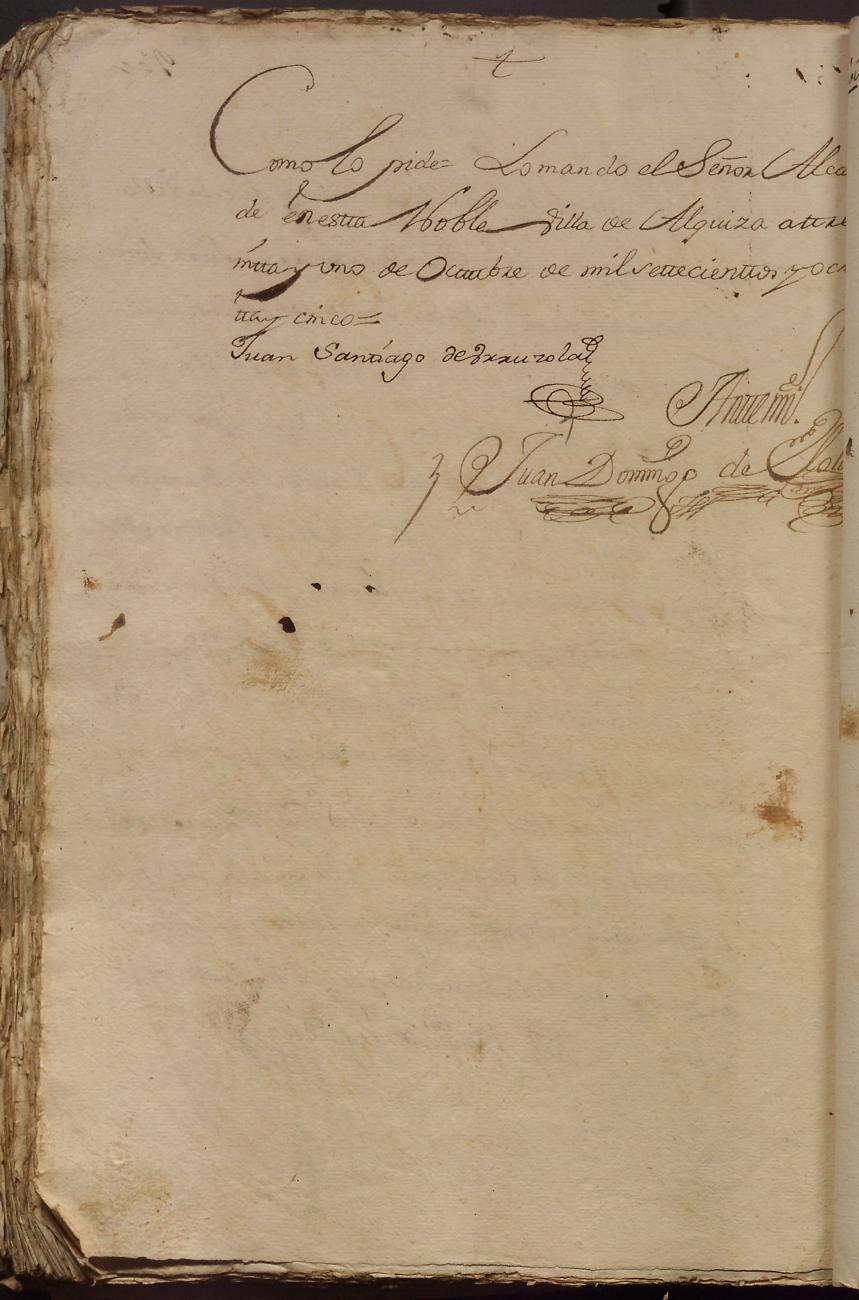 Como lo pide= Lo mando el Señor Alca
de en estta Noble Villa de Alquiza a ttre
intta y uno de Octtubre de mil settecienttos y oc
tta y cinco=
Juan Santiago de Yrrurzola
Antte mi
Juan Domingo de